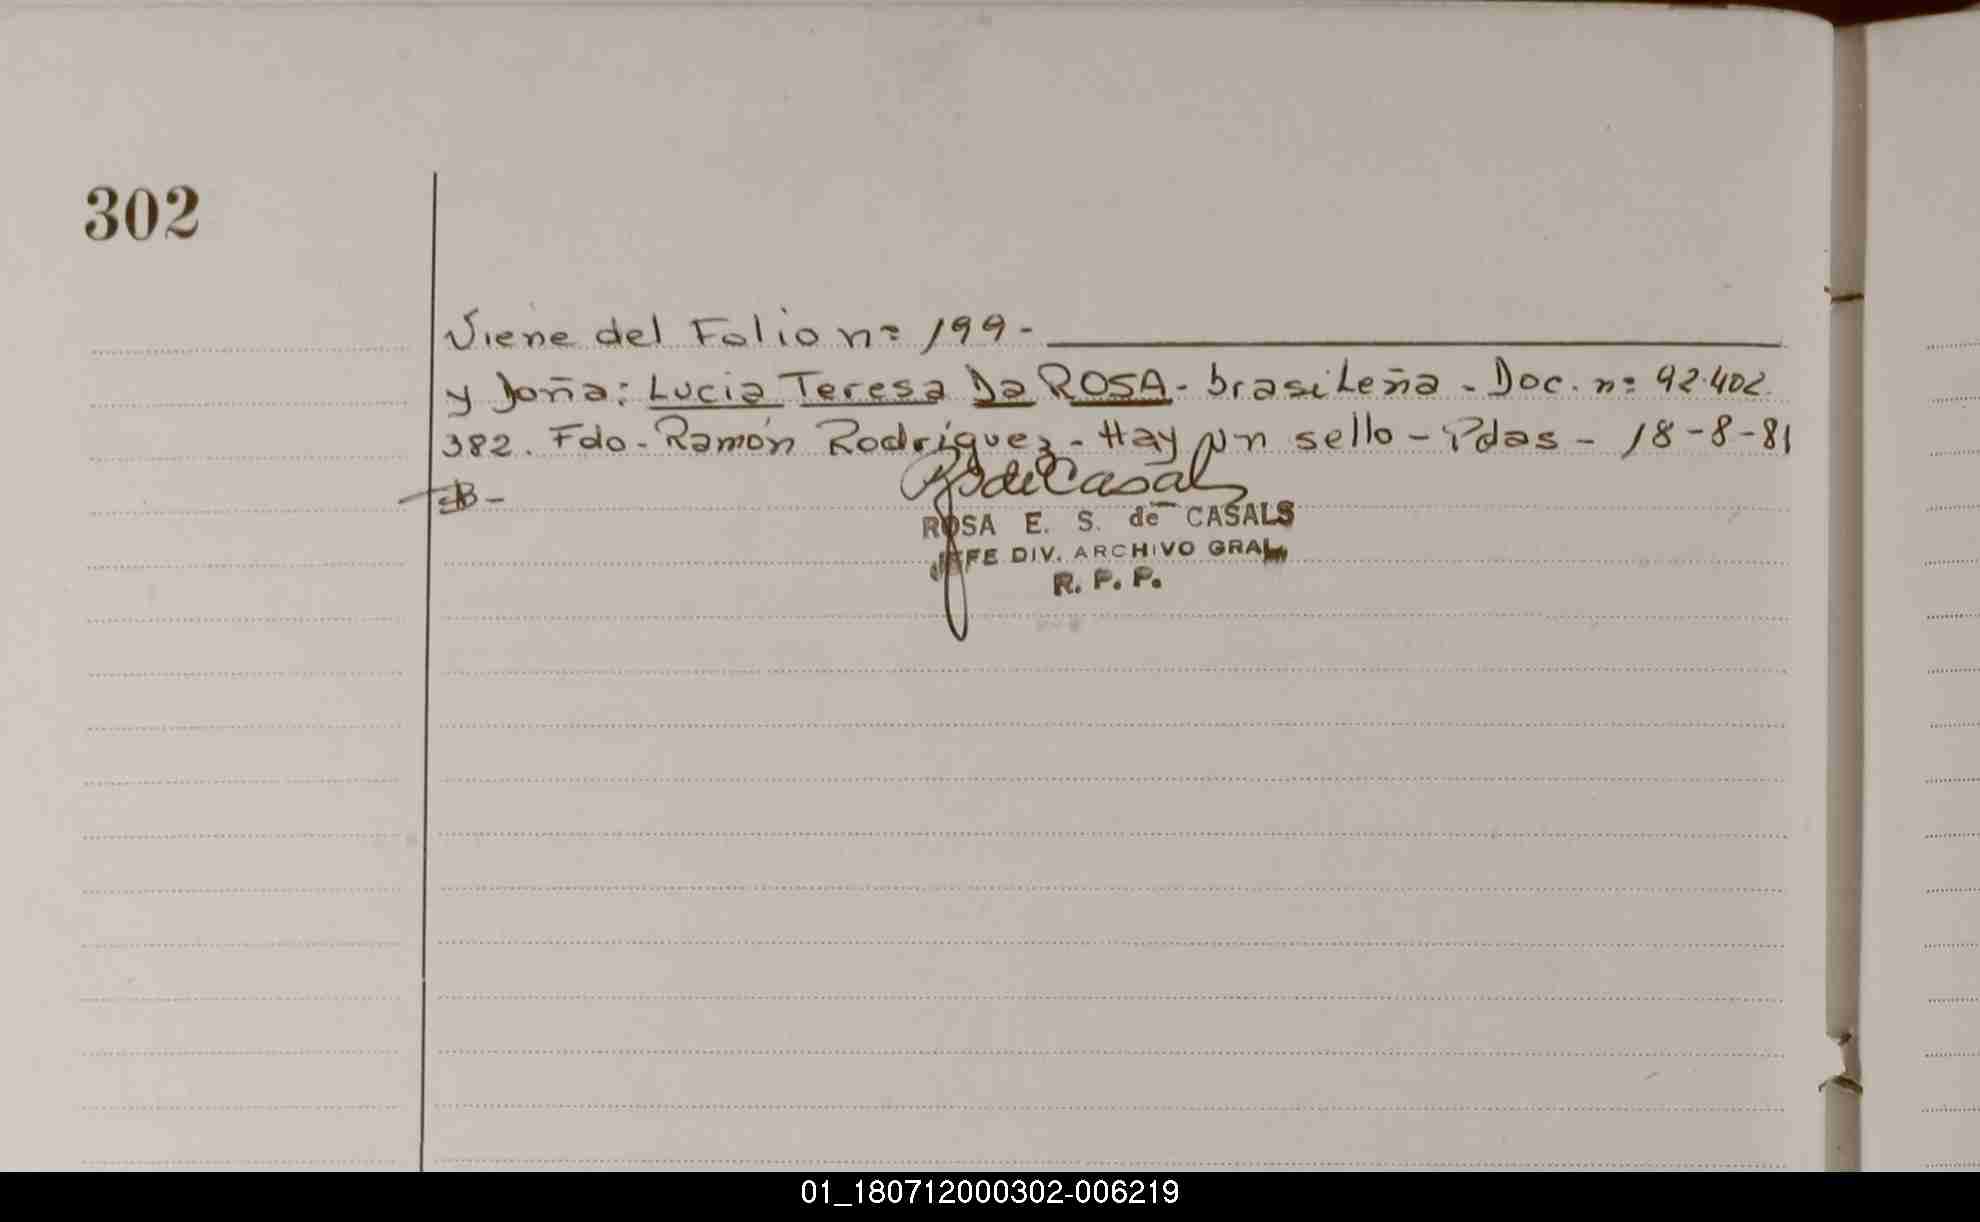 302
Viene del Folio nº 199-
y Doña: Lucia Teresa Da ROSA - brasileña - Doc. nº 92.402.
382. Fdo - Ramón Rodriguez - Hay un sello - Pdas - 18-8-81
RS de Casals
ROSA E. S. de CASALS
JEFE DIV. ARCHIVO GRAL.
R. P. P.
01_180712000302-006219